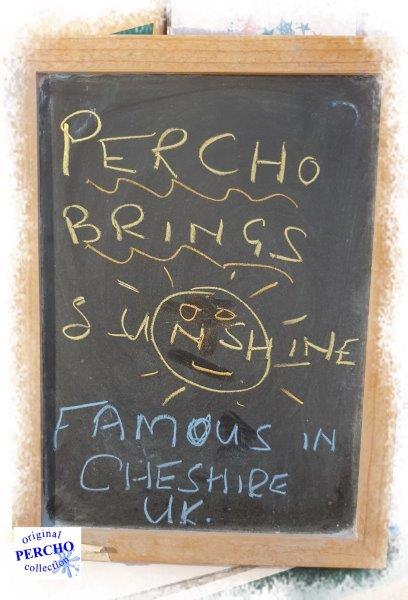 PERCHO
BRINGS
SUNSHINE
FAMOUS IN
CHESHIRE
UK.
original
PERCHO
collection